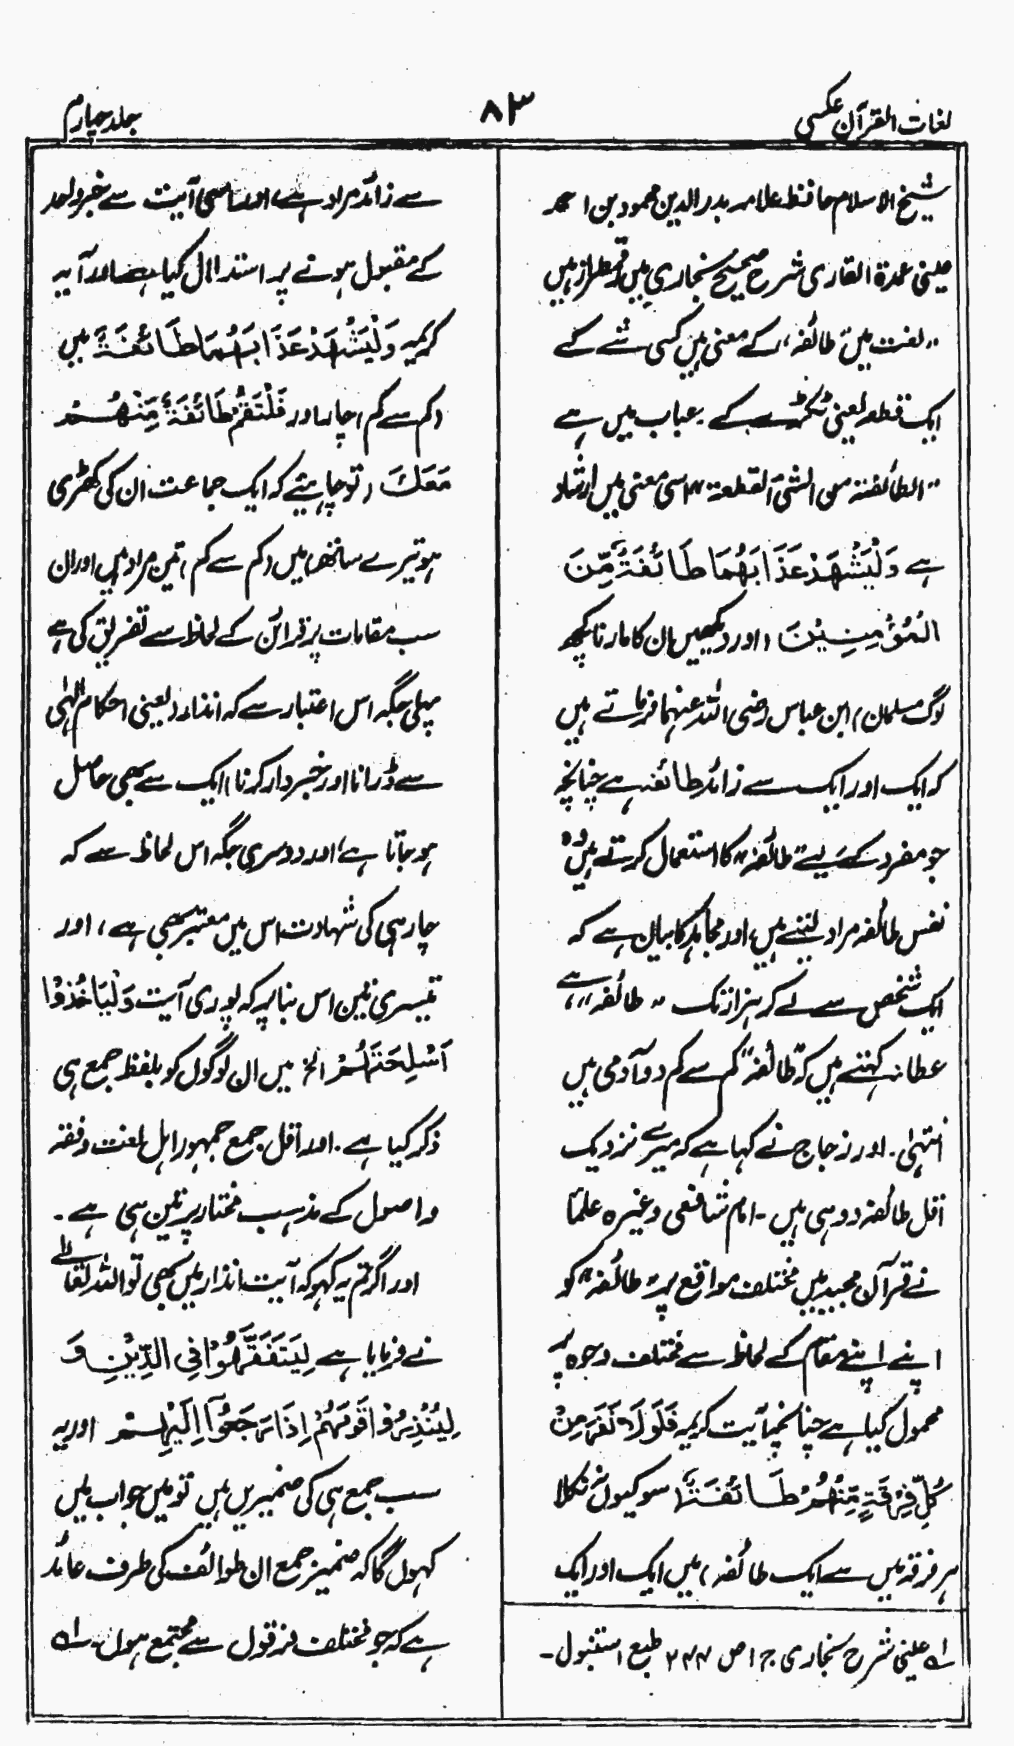 لغات القرآن عکسی
۸۳
جلد چہارم
شیخ الاسلام حافظ علامہ بدر الدین محمود بن احمد
عینی عمدۃ القاری شرح صحیح بخاری میں رقمطراز ہیں
"لغت میں "طائفہ" کے معنی ہیں کسی شئے کے
ایک قطعہ یعنی ٹکڑے کے۔ عباب میں ہے
"الطائفۃ من الشئ القطعۃ" اسی معنی میں ارشاد
ہے وَلْيَشْهَدْ عَذَابَهُمَا طَائِفَةٌ مِّنَ
الْمُؤْمِنِيْنَ (اور دیکھیں ان کا مارنا کچھ
لوگ مسلمان) ابن عباس رضی اللہ عنہما فرماتے ہیں
کہ ایک اور ایک سے زائد طائفہ ہے چنانچہ
جو مفرد کے لیے "طائفہ" کا استعمال کرتے ہیں وہ
نفس طائفہ مراد لیتے ہیں، اور مجاہد کا بیان ہے کہ
ایک شخص سے لے کر ہزار تک "طائفہ" ہے،
عطاء کہتے ہیں کہ "طائفہ" کم سے کم دو آدمی ہیں
انتہٰی۔ اور زجاج نے کہا ہے کہ میرے نزدیک
اقل طائفہ دو ہی ہیں۔ امام شافعی وغیرہ علماء
نے قرآن مجید میں مختلف مواقع پر "طائفہ" کو
اپنے اپنے مقام کے لحاظ سے مختلف وجوہ پر
محمول کیا ہے چنانچہ آیت کریمہ فَلَوْلَا نَفَرَ مِنْ
كُلِّ فِرْقَةٍ مِّنْهُمْ طَائِفَةٌ (سو کیوں نہ نکلا
ہر فرقہ میں سے ایک طائفہ) میں ایک اور ایک
سے زائد مراد ہے، اور اسی آیت سے خبر واحد
کے مقبول ہونے پر استدلال کیا ہے اور آیہ
کریمہ وَلْيَشْهَدْ عَذَابَهُمَا طَائِفَةٌ میں
(کم سے کم) چار اور فَلْتَقُمْ طَائِفَةٌ مِّنْهُمْ
مَعَكَ (تو چاہئے کہ ایک جماعت ان کی کھڑی
ہو تیرے ساتھ) میں (کم سے کم) تین مراد ہیں اور ان
سب مقامات پر قرائن کے لحاظ سے تفریق کی ہے
پہلی جگہ اس اعتبار سے کہ انذار (یعنی احکام الٰہی
سے ڈرانا اور خبردار کرنا) ایک سے بھی حاصل
ہو جاتا ہے، اور دوسری جگہ اس لحاظ سے کہ
چار ہی کی شہادت اس میں معتبر بھی ہے، اور
تیسری میں اس بنا پر کہ پوری آیت وَلْيَأْخُذُوْا
اَسْلِحَتَهُمْ الخ میں ان لوگوں کو بلفظ جمع ہی
ذکر کیا ہے۔ اور اقل جمع جمہور اہل لغت و فقہ
و اصول کے مذہب مختار پر تین ہی ہے۔
اور اگر تم یہ کہو کہ آیت انذار میں بھی تو اللہ تعالیٰ
نے فرمایا ہے لِيَتَفَقَّهُوْا فِى الدِّيْنِ وَ
لِيُنْذِرُوْا قَوْمَهُمْ اِذَا رَجَعُوْآ اِلَيْهِمْ اور یہ
سب جمع ہی کی ضمیریں ہیں تو میں جواب میں
کہوں گا کہ ضمیر جمع ان طوائف کی طرف عائد
ہے کہ جو مختلف فرقوں سے مجتمع ہوں۔ لہ
لہ عینی شرح بخاری ج۱ ص ۲۴۴ طبع استنبول۔